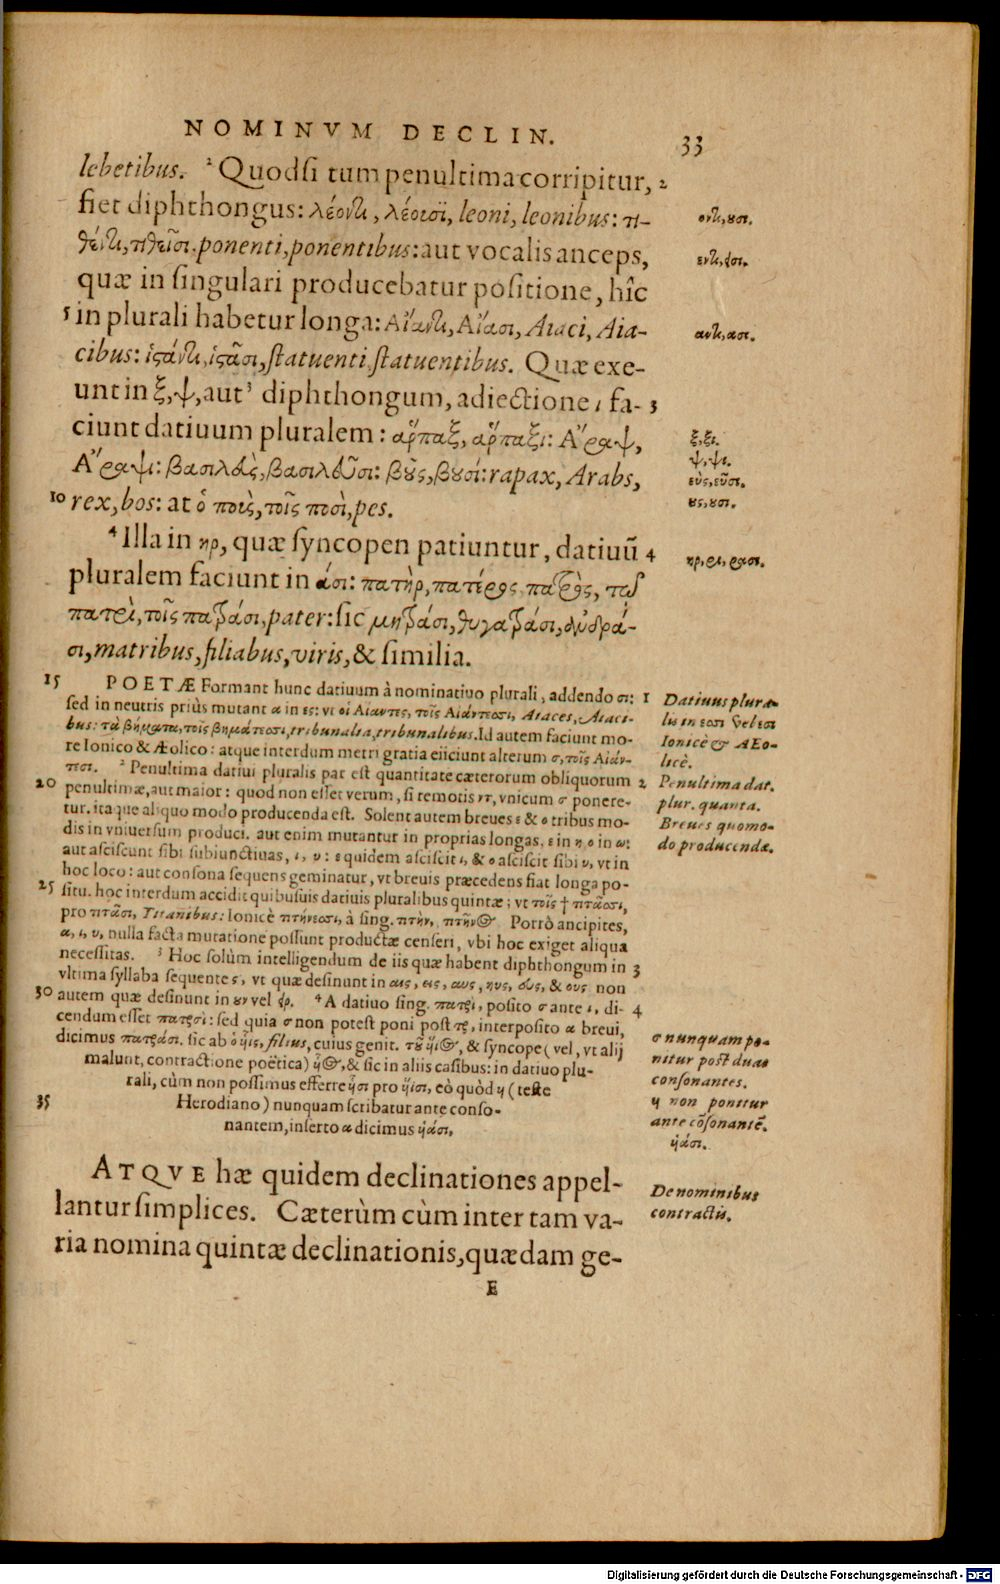 NOMINVM DECLIN.
33
lebetibus. ² Quodsi tum penultima corripitur, 2
fiet diphthongus: λέοντι, λέουσι, leoni, leonibus: τι-
θέντι, τιθεῖσι. ponenti, ponentibus: aut vocalis anceps,
quæ in singulari producebatur positione, hîc
5 in plurali habetur longa: Αἴαντι, Αἴασι, Aiaci, Aia-
cibus: ἱστάντι, ἱστᾶσι, statuenti, statuentibus. Quæ exe-
unt in ξ, ψ, aut ³ diphthongum, adiectione ι fa- 3
ciunt datiuum pluralem: ἅρπαξ, ἅρπαξι: Ἄραψ,
Ἄραψι: βασιλεὺς, βασιλεῦσι: βοῦς, βουσί: rapax, Arabs,
10 rex, bos: at ὁ ποὺς, τοῖς ποσὶ, pes.
⁴ Illa in ηρ, quæ syncopen patiuntur, datiuū 4
pluralem faciunt in άσι: πατὴρ, πατέρος πατρὸς, τῷ
πατρὶ, τοῖς πατράσι, pater: sic μητράσι, θυγατράσι, ἀνδρά-
σι, matribus, filiabus, viris, & similia.
15 POETÆ Formant hunc datiuum à nominatiuo plurali, addendo σι: 1
sed in neutris priùs mutant α in ες: vt οἱ Αἴαντες, τοῖς Αἰάντεσσι, Aiaces, Aiaci-
bus: τὰ βήματα, τοῖς βημάτεσσι, tribunalia, tribunalibus. Id autem faciunt mo-
re Ionico & Æolico: atque interdum metri gratia eiiciunt alterum σ, τοῖς Αἰάν-
τεσι. ² Penultima datiui pluralis par est quantitate cæterorum obliquorum 2
20 penultimæ, aut maior: quod non esset verum, si remotis ντ, vnicum σ ponere-
tur. itaque aliquo modo producenda est. Solent autem breues ε & ο tribus mo-
dis in vniuersum produci. aut enim mutantur in proprias longas, ε in η, ο in ω:
aut asciscunt sibi subiunctiuas, ι, υ: ε quidem asciscit ι, & ο asciscit sibi υ, vt in
hoc loco: aut consona sequens geminatur, vt breuis præcedens fiat longa po-
25 situ. hoc interdum accidit quibusuis datiuis pluralibus quintæ; vt τοῖς † πτᾶσσι,
pro πτᾶσι, Titanibus: Ionicè πτήνεσσι, à sing. πτὴν, πτῆνος. Porrò ancipites,
α, ι, υ, nulla facta mutatione possunt productæ censeri, vbi hoc exiget aliqua
necessitas. ³ Hoc solùm intelligendum de iis quæ habent diphthongum in 3
vltima syllaba sequente ς, vt quæ desinunt in αις, εις, αυς, ηυς, ευς, & ους non
30 autem quæ desinunt in ουν vel ειρ. ⁴ A datiuo sing. πατρι, posito σ ante ι, di- 4
cendum esset πατρσι: sed quia σ non potest poni post τρ, interposito α breui,
dicimus πατράσι. sic ab ὁ υἱις, filius, cuius genit. τοῦ υἱιος, & syncope (vel, vt alij
malunt, contractione poëtica) υἷος, & sic in aliis casibus: in datiuo plu-
rali, cùm non possimus efferre υἷσι pro υἵισι, eò quòd υι (teste
35 Herodiano) nunquam scribatur ante conso-
nantem, inserto α dicimus υἱάσι,
ATQVE hæ quidem declinationes appel-
lantur simplices. Cæterùm cùm inter tam va-
ria nomina quintæ declinationis, quædam ge-
E
οντι, ουσι.
εντι, εισι.
αντι, ασι.
ξ, ξι.
ψ, ψι.
εὺς, εῦσι.
ους, ουσι.
ηρ, ρι, ρασι.
Datiuus plura-
lis in εσσι vel εσι
Ionicè & AEo-
licè.
Penultima dat.
plur. quanta.
Breues quomo-
do producendæ.
σ nunquam po-
nitur post duas
consonantes.
υι non ponitur
ante cōsonantē.
υἱάσι.
De nominibus
contractis.
Digitalisierung gefördert durch die Deutsche Forschungsgemeinschaft - DFG